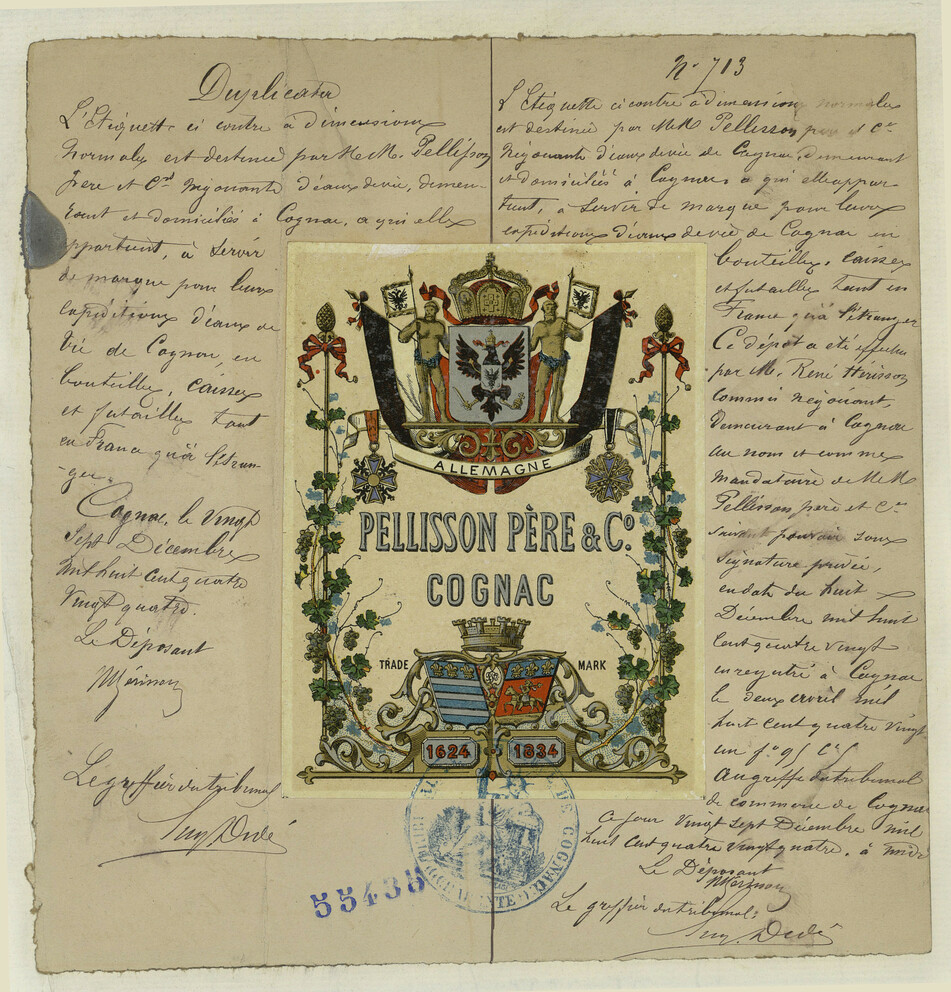 Duplicata
L'Etiquette ci contre à dimensions
Normales est destinée par M.M. Pellisson
père et Cie Négociants d'eaux de vie, demeu-
rant et domiciliés à Cognac, à qui elle
appartient, à servir
de marque pour leurs
expéditions d'eaux de
Vie de Cognac, en
bouteilles, caisses
et futailles tant
en France qu'à l'étran-
-ger.
Cognac, le Vingt
Sept Décembre
mil huit cent quatre
Vingt quatre.
Le Déposant
Le greffier du tribunal
N° 713
L'Etiquette ci contre à dimensions normales
est destinée par M.M. Pellisson père et Cie
Négociants d'eaux de vie de Cognac, demeurant
et domiciliés à Cognac, à qui elle appar
tient, à servir de marque pour leurs
expéditions d'eaux de vie de Cognac en
bouteilles, caisses
et futailles tant en
France qu'à l'étranger
Ce dépôt a été effectué
par M. René Hérisson
Commis Négociant,
demeurant à Cognac
au nom et comme
mandataire de M.M.
Pellisson père et Cie
suivant pouvoir sous
signature privée,
en date du huit
Décembre mil huit
cent quatre vingt
enregistré à Cognac
le deux avril mil
huit cent quatre vingt
un f°
Au greffe du tribunal
de commerce de Cognac
ce jour Vingt sept Décembre mil
huit cent quatre vingt quatre, à midi
Le Déposant
Le greffier du tribunal:
ALLEMAGNE
PELLISSON PÈRE & Co.
COGNAC
TRADE MARK
1624 1834
DE COGNAC
55438